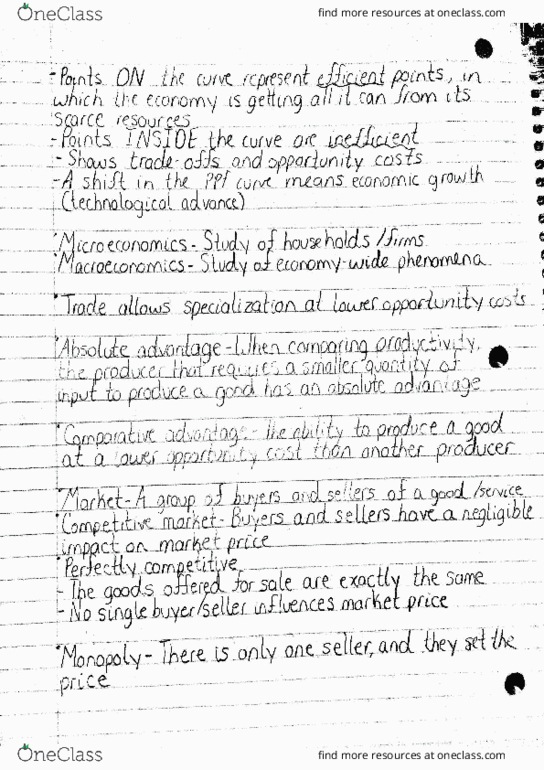 OneClass
find more resources at oneclass.com
- Points ON the curve represent efficient points, in
which the economy is getting all it can from its
scarce resources
- Points INSIDE the curve are inefficient
- Shows trade-offs and opportunity costs
- A shift in the PPF curve means economic growth
(technological advance)
·Microeconomics - Study of households/firms
·Macroeconomics - Study of economy-wide phenomena
·Trade allows specialization at lower opportunity costs
·Absolute advantage - When comparing productivity,
the producer that requires a smaller quantity of
input to produce a good has an absolute advantage
·Comparative advantage - the ability to produce a good
at a lower opportunity cost than another producer
·Market - A group of buyers and sellers of a good/service
·Competitive market - Buyers and sellers have a negligible
impact on market price
·Perfectly competitive
- The goods offered for sale are exactly the same
- No single buyer/seller influences market price
·Monopoly - There is only one seller, and they set the
price
OneClass
find more resources at oneclass.com